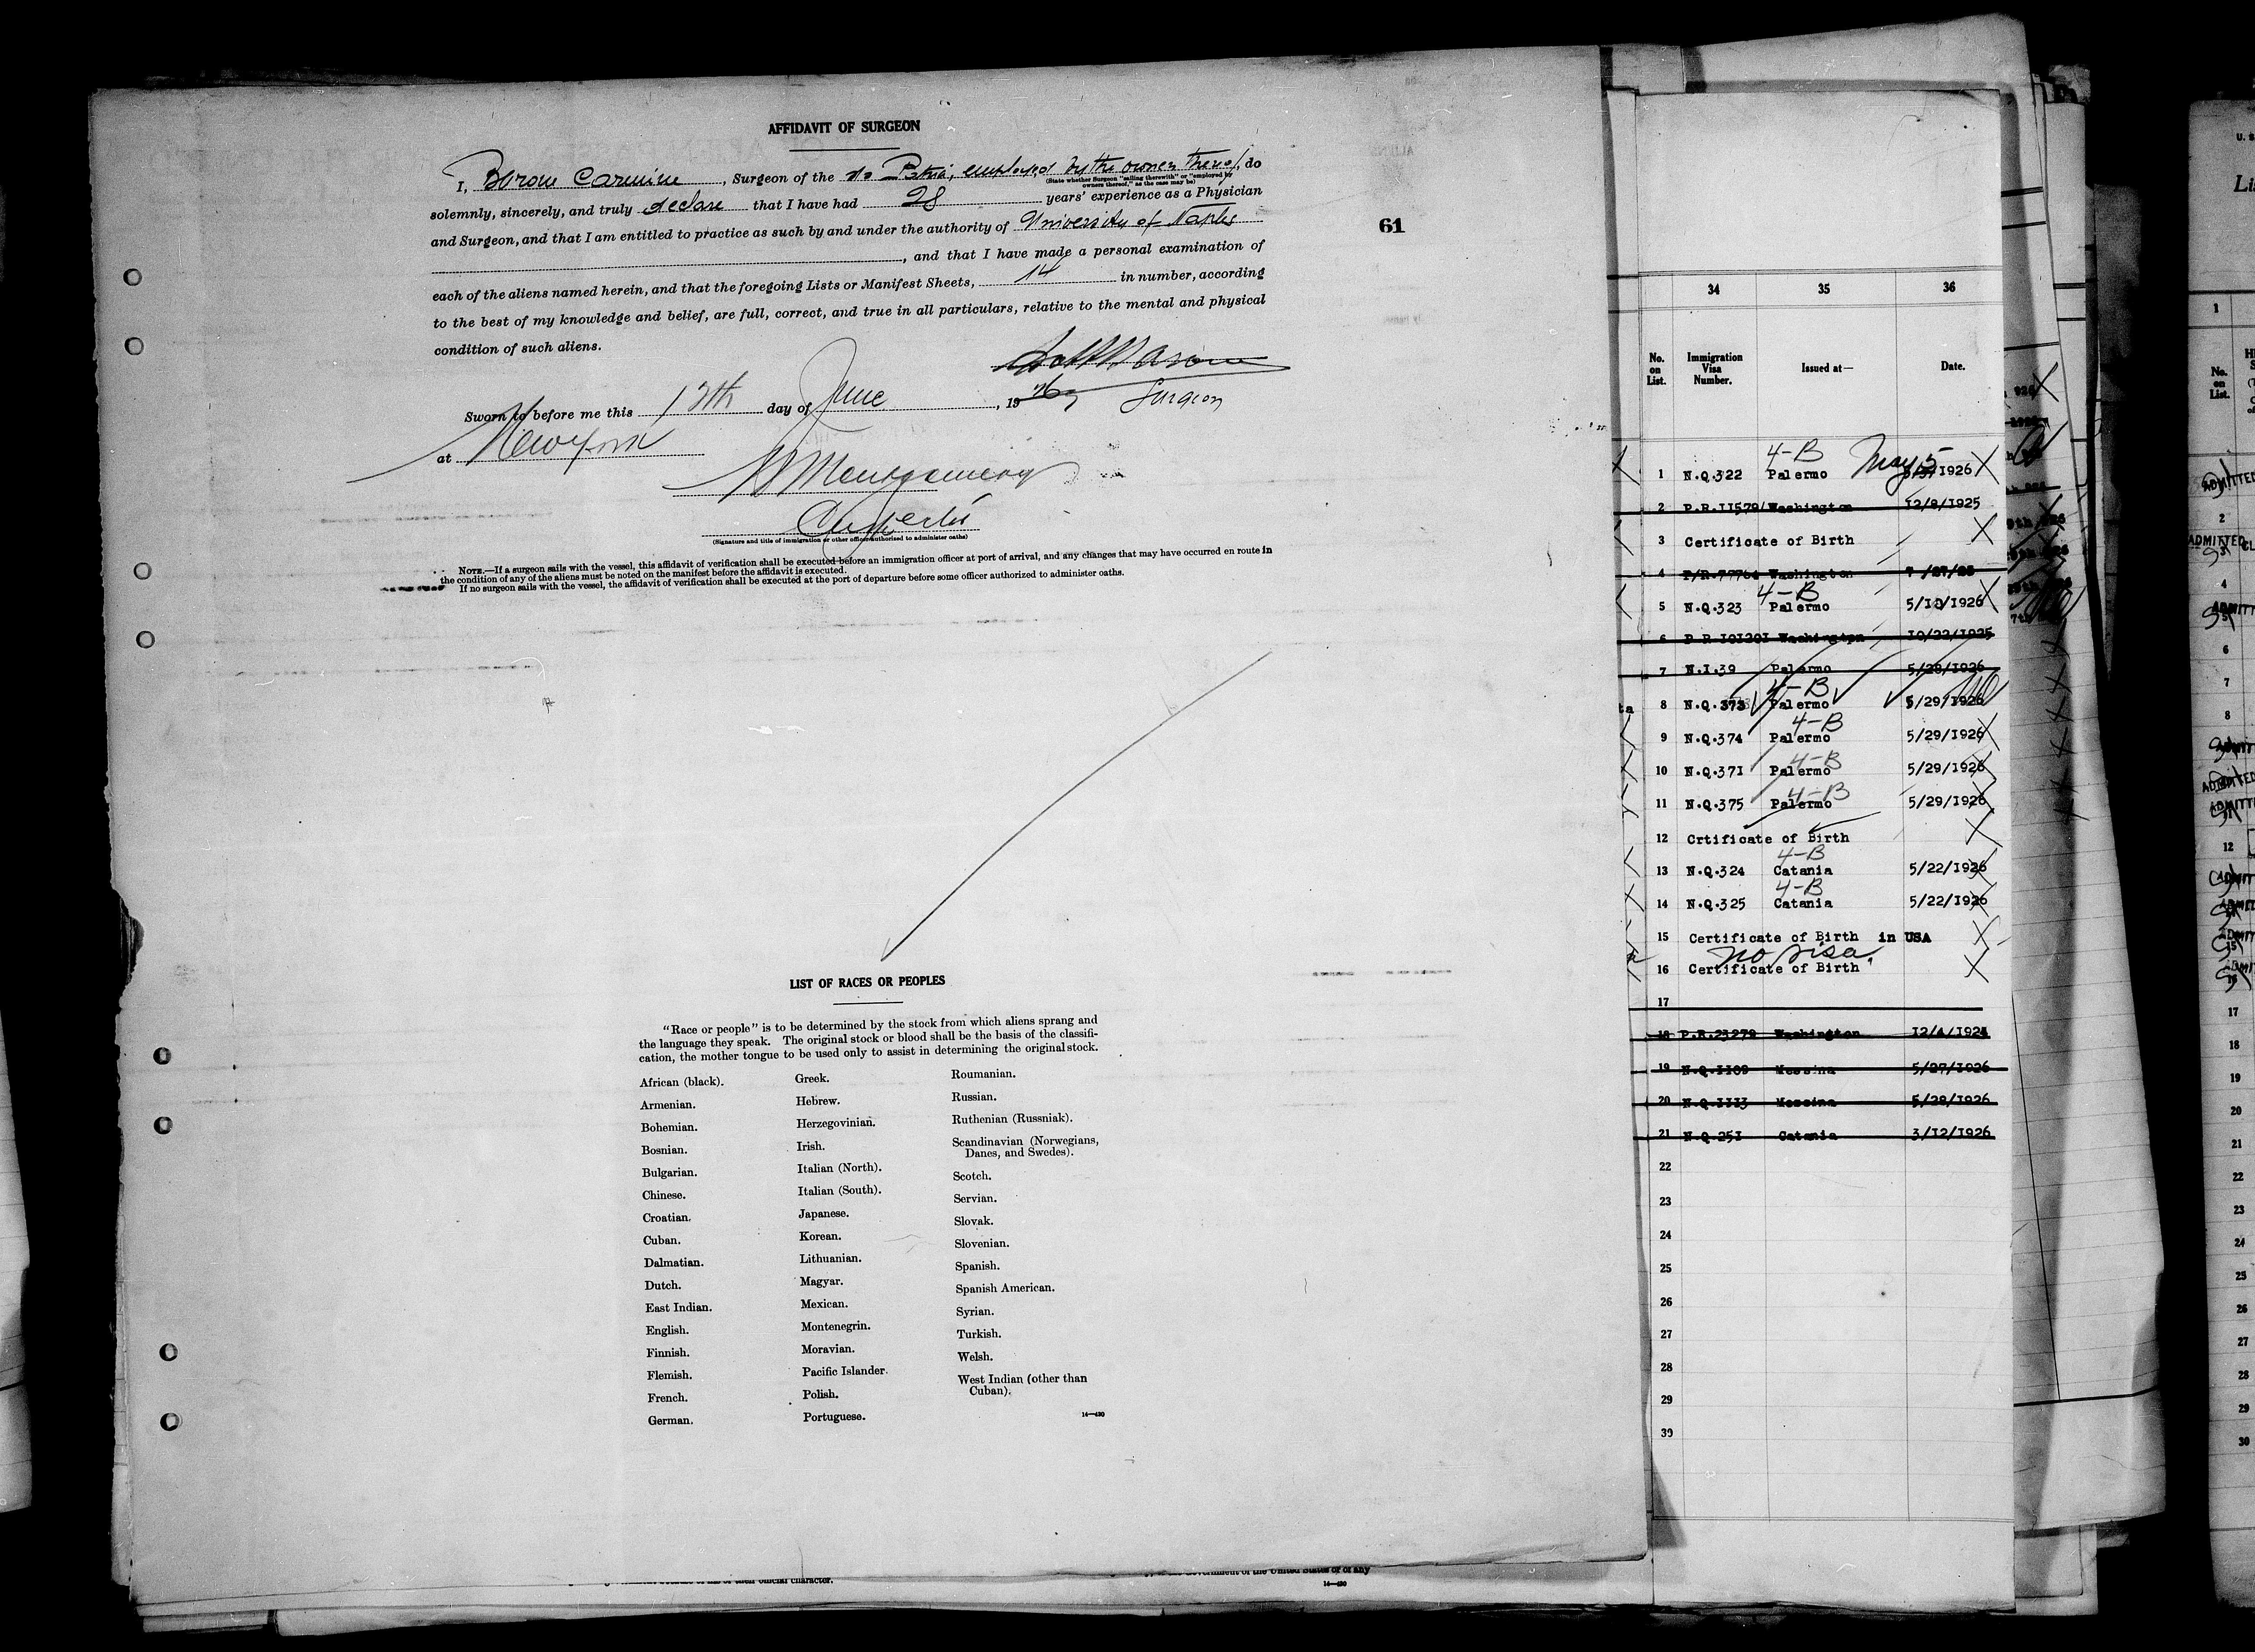 AFFIDAVIT OF SURGEON
I, Barone Carmine, Surgeon of the s/s Patria, employed by the owner thereof, do
(State whether Surgeon "sailing therewith" or "employed by
owners thereof," as the case may be)
solemnly, sincerely, and truly declare that I have had 28 years' experience as a Physician
and Surgeon, and that I am entitled to practice as such by and under the authority of University of Naples
, and that I have made a personal examination of
each of the aliens named herein, and that the foregoing Lists or Manifest Sheets, 14 in number, according
to the best of my knowledge and belief, are full, correct, and true in all particulars, relative to the mental and physical
condition of such aliens.
Sworn to before me this 12th day of June, 19 26 Surgeon
at New York
Montgomery
(Signature and title of immigration or other officer authorized to administer oaths)
NOTE.—If a surgeon sails with the vessel, this affidavit of verification shall be executed before an immigration officer at port of arrival, and any changes that may have occurred en route in
the condition of any of the aliens must be noted on the manifest before the affidavit is executed.
If no surgeon sails with the vessel, the affidavit of verification shall be executed at the port of departure before some officer authorized to administer oaths.
61
LIST OF RACES OR PEOPLES
"Race or people" is to be determined by the stock from which aliens sprang and
the language they speak. The original stock or blood shall be the basis of the classifi-
cation, the mother tongue to be used only to assist in determining the original stock.
African (black).
Armenian.
Bohemian.
Bosnian.
Bulgarian.
Chinese.
Croatian.
Cuban.
Dalmatian.
Dutch.
East Indian.
English.
Finnish.
Flemish.
French.
German.
Greek.
Hebrew.
Herzegovinian.
Irish.
Italian (North).
Italian (South).
Japanese.
Korean.
Lithuanian.
Magyar.
Mexican.
Montenegrin.
Moravian.
Pacific Islander.
Polish.
Portuguese.
Roumanian.
Russian.
Ruthenian (Russniak).
Scandinavian (Norwegians,
Danes, and Swedes).
Scotch.
Servian.
Slovak.
Slovenian.
Spanish.
Spanish American.
Syrian.
Turkish.
Welsh.
West Indian (other than
Cuban).
14—430
34 35 36
No. on List. Immigration Visa Number. Issued at— Date.
4-B May 5
1 N.Q.322 Palermo 1926
2 P.R.11579 Washington 12/8/1925
3 Certificate of Birth
4 P/R.77764 Washington 7/27/25
4-B
5 N.Q.323 Palermo 5/10/1926
6 P.R.101201 Washington 10/22/1925
7 N.I.39 Palermo 5/28/1926
4-B
8 N.Q.373 Palermo 5/29/1926
4-B
9 N.Q.374 Palermo 5/29/1926
4-B
10 N.Q.371 Palermo 5/29/1926
4-B
11 N.Q.375 Palermo 5/29/1926
12 Crtificate of Birth
4-B
13 N.Q.324 Catania 5/22/1926
4-B
14 N.Q.325 Catania 5/22/1926
15 Certificate of Birth in USA
no visa
16 Certificate of Birth
17
18 P.R.23279 Washington 12/4/1924
19 N.Q.1109 Messina 5/27/1926
20 N.Q.1113 Messina 5/28/1926
21 N.Q.251 Catania 3/12/1926
22
23
24
25
26
27
28
29
30
14—430
1
No. on List.
ADMITTED
2
ADMITTED
4
6
7
8
12
17
18
19
20
21
22
23
24
25
26
27
28
29
30